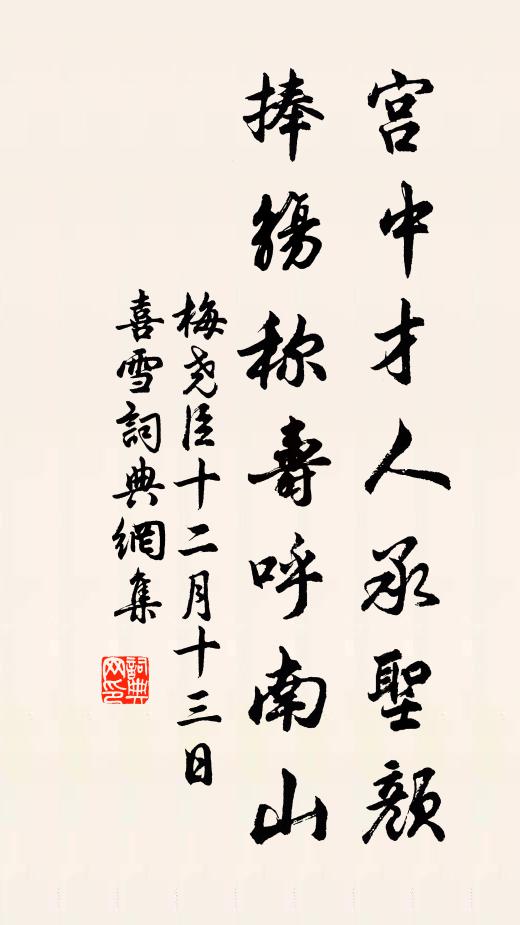 宫中才人承聖顏
捧觴称壽呼南山
梅尧臣十二月十三日
喜雪詞典網集
詞典网印